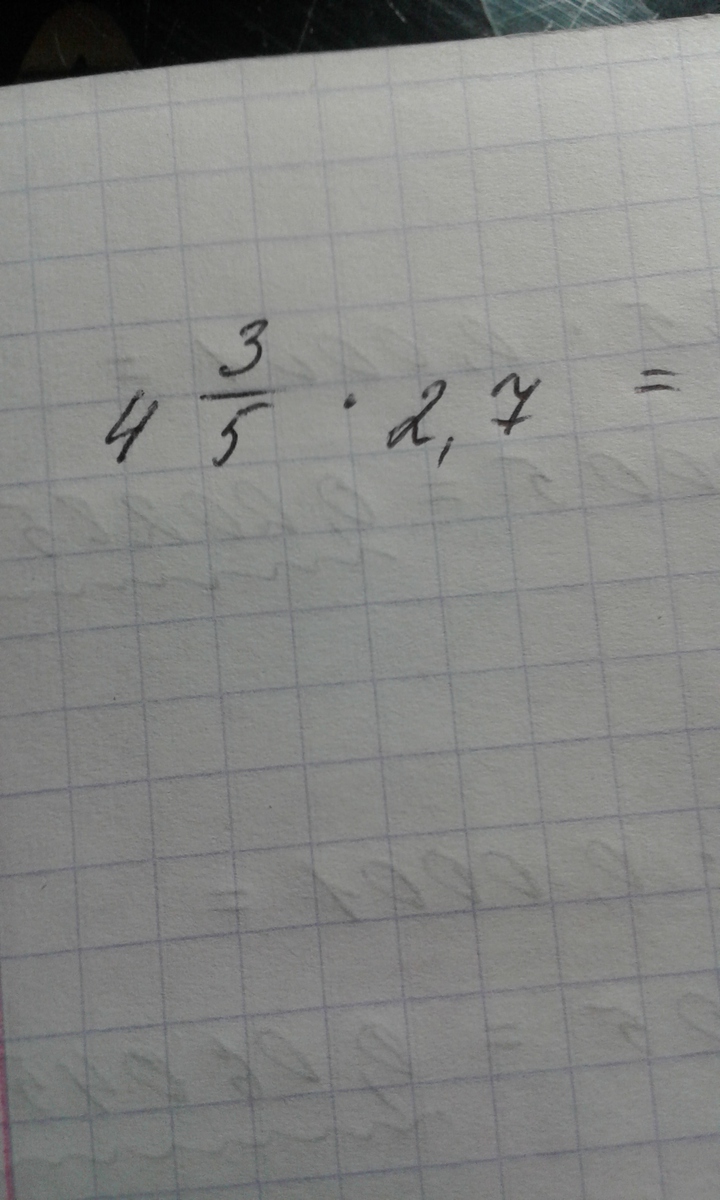 4 3/5 · 2,7 =